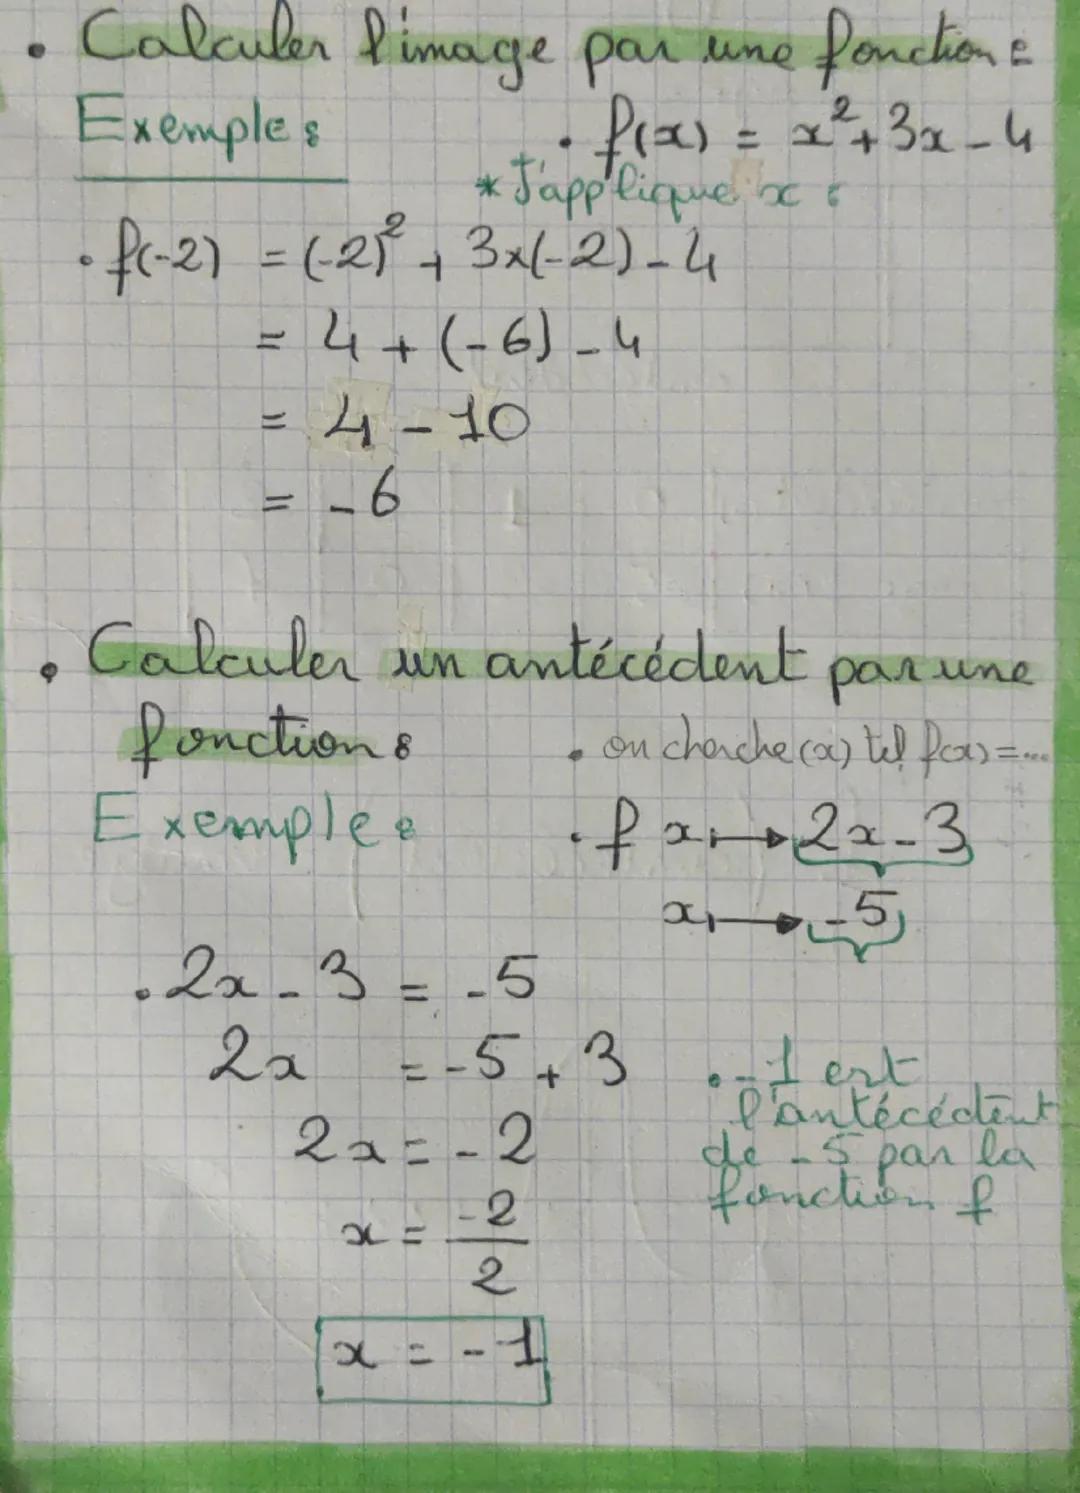 • Calculer l'image par une fonction :
Exemple :
• f(x) = x² + 3x - 4
* J'applique x :
• f(-2) = (-2)² + 3×(-2) - 4
= 4 + (-6) - 4
= 4 - 10
= -6
• Calculer un antécédent par une
fonction :
• on cherche (x) tel f(x) = ...
Exemple :
• f x ⟼ 2x - 3
x ⟼ -5
• 2x - 3 = -5
2x = -5 + 3
2x = -2
x = -2/2
x = -1
• -1 est
l'antécédent
de -5 par la
fonction f